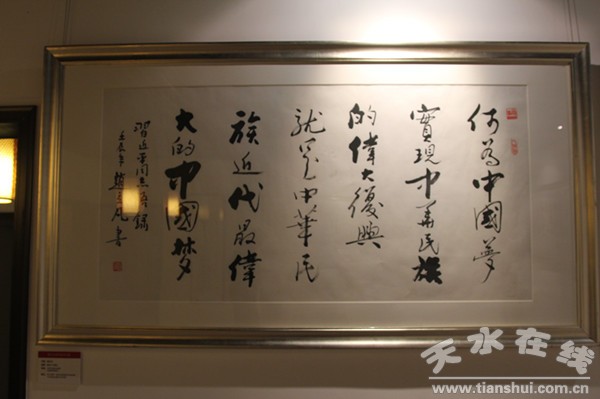 何為中國夢
實現中華民族
的偉大復興
就是中華民
族近代最偉
大的中國梦
習近平同志語錄
壬辰年 書
天水在线
www.tianshui.com.cn